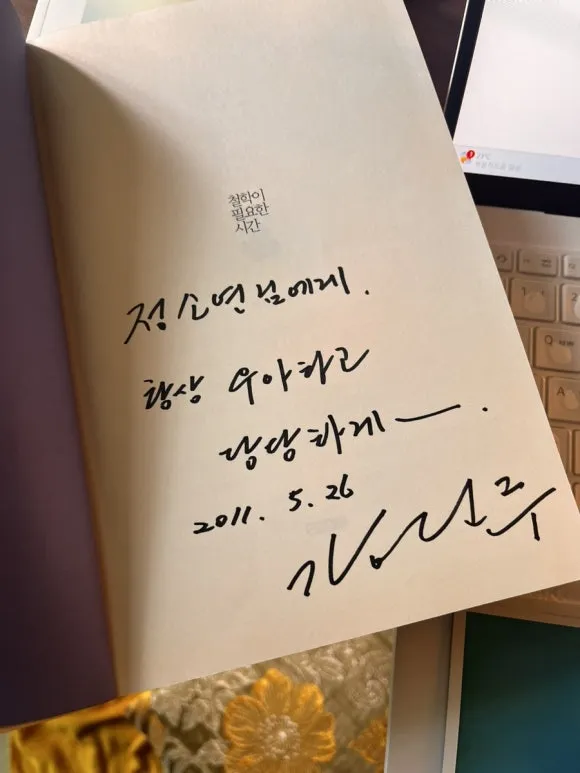 철학이
필요한
시간
정소연님에게.
항상 우아하고
당당하게—.
2011. 5. 26
77°C
Q
A
1
2